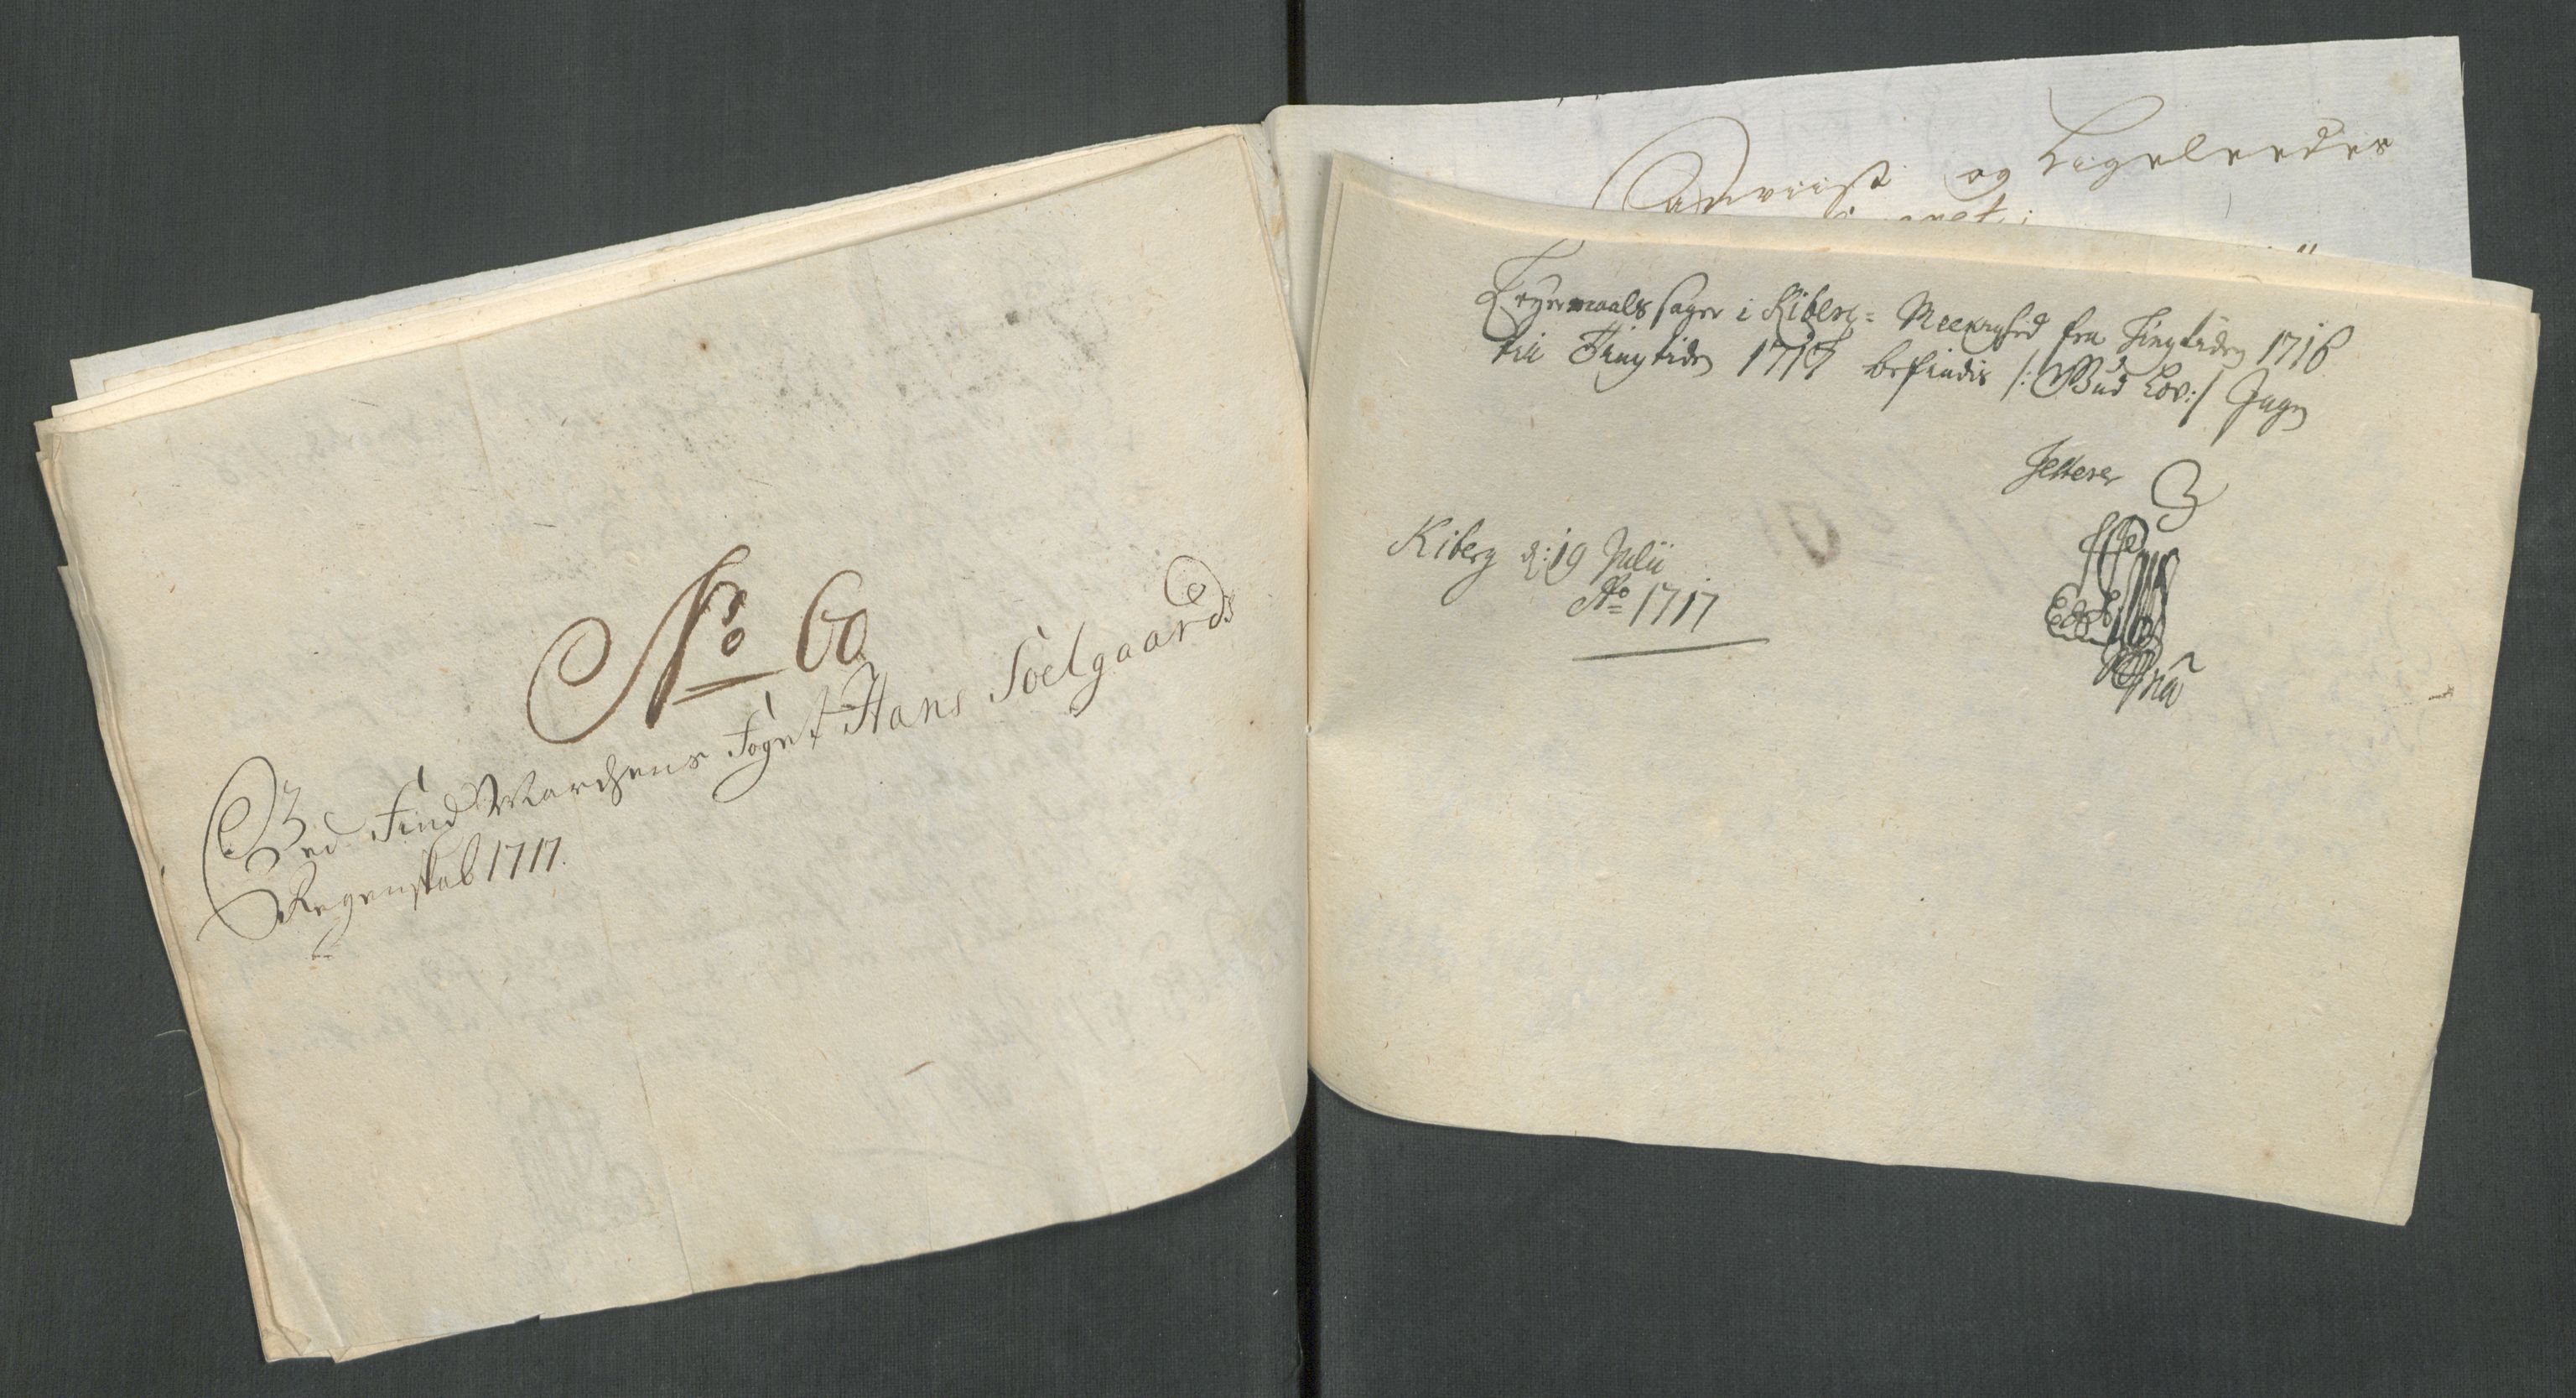 No 60
Ved Find Marchens Foget Hans Soelgaards
Regenskab 1717.
og Ligeleedes
Leyermaals sager i Kiberg= Meenighed fra Tingtiden 1716
til Tingtiden 1717 befindis /: Gud Lov:/ Ingen
Testerer
Kiberg d: 19 Julii
Ao 1717